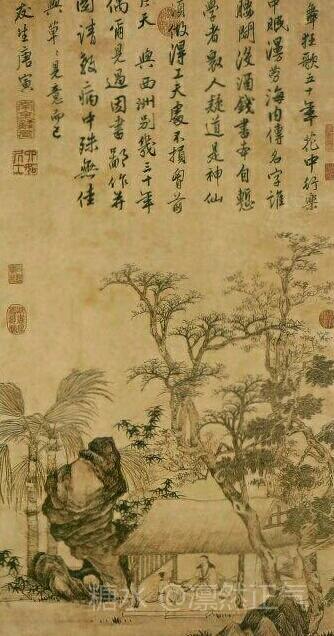 舞狂歌五十年花中行樂
中眠漫勞海內傳名字誰
腰間沒酒錢書本自慙
學者衆人疑道是神仙
須做得工夫處不損胷前
天 與西洲別幾三十年
偶爾見過因書鄙作并
圖請教病中殊無佳
興草〻見意而已
友生唐寅
糖水 @凛然正气